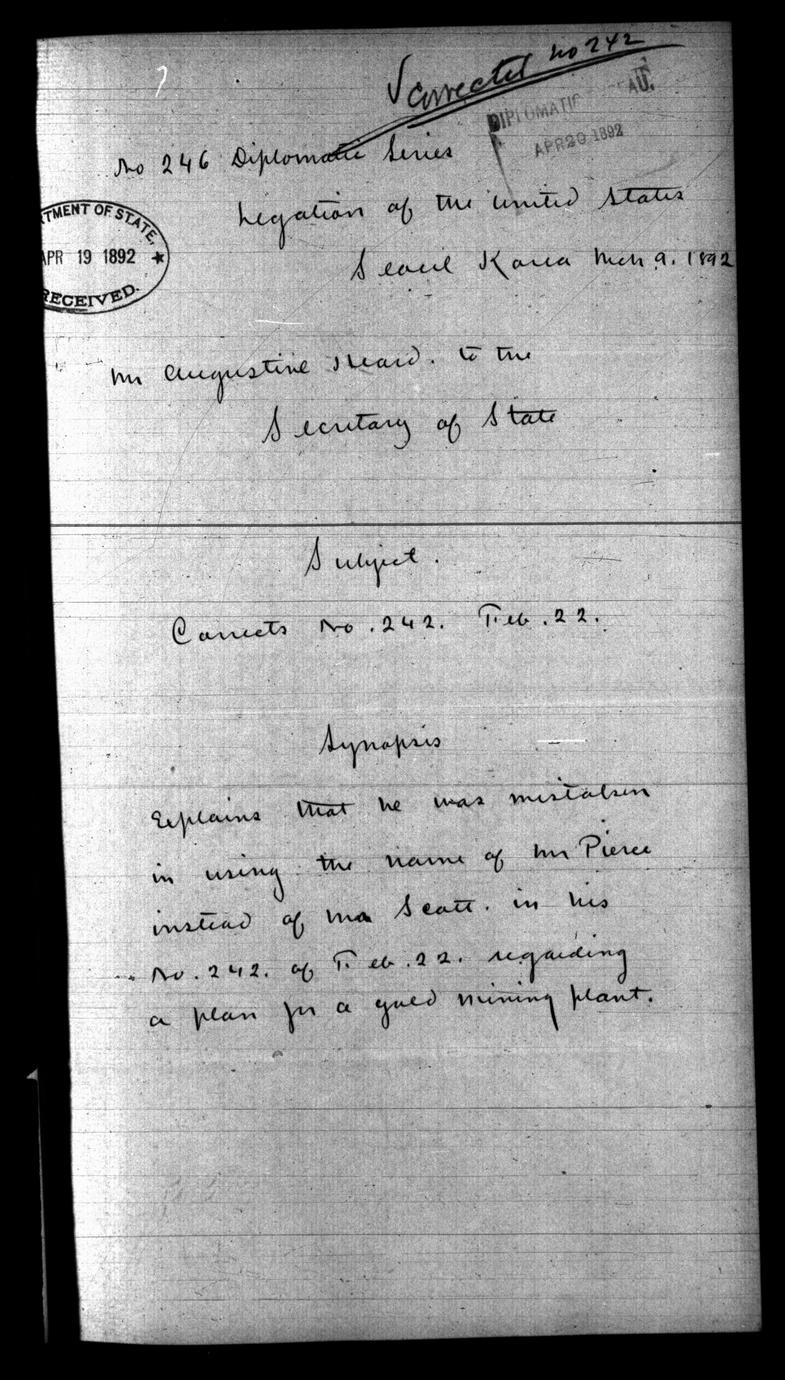 √ Corrected no 242
DIPLOMATIC AU.
APR 20 1892
No 246 Diplomatic Series
Legation of the United States
TMENT OF STATE,
APR 19 1892
RECEIVED.
Seoul Korea Mch 9. 1892
Mr Augustine Heard. to the
Secretary of State
Subject.
Corrects No. 242. Feb. 22.
Synopsis
Explains that he was mistaken
in using the name of Mr Pierce
instead of Mr Scott. in his
No. 242. of Feb. 22. regarding
a plan for a gold mining plant.